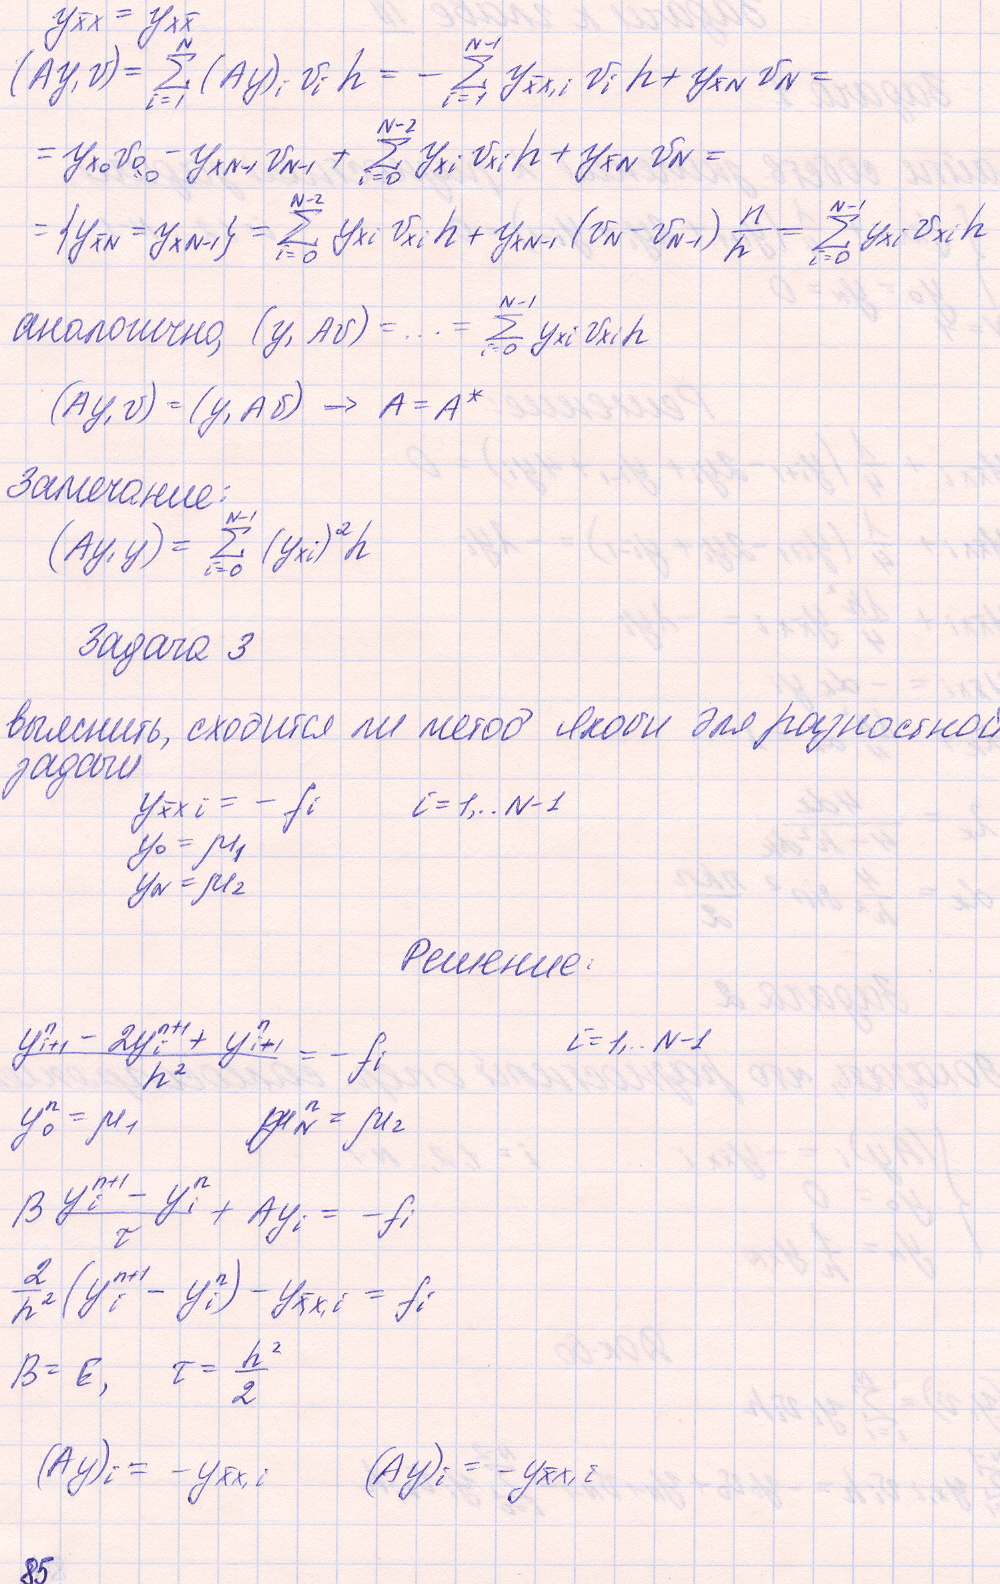 y_{x̄x} = y_{xx̄}
(Ay, v) = \sum_{i=1}^{N} (Ay)_i v_i h = - \sum_{i=1}^{N-1} y_{x̄x,i} v_i h + y_{x̄N} v_N =
= y_{x0} v_0 - y_{xN-1} v_{N-1} + \sum_{i=0}^{N-2} y_{xi} v_{xi} h + y_{x̄N} v_N =
= {y_{x̄N} = y_{xN-1}} = \sum_{i=0}^{N-2} y_{xi} v_{xi} h + y_{xN-1} (v_N - v_{N-1}) \frac{h}{h} = \sum_{i=0}^{N-1} y_{xi} v_{xi} h
аналогично, (y, Av) = ... = \sum_{i=0}^{N-1} y_{xi} v_{xi} h
(Ay, v) = (y, Av) → A = A*
Замечание:
(Ay, y) = \sum_{i=0}^{N-1} (y_{xi})^2 h
Задача 3
выяснить, сходится ли метод Якоби для разностной
задачи
y_{x̄x i} = - f_i i = 1,.. N-1
y_0 = μ_1
y_N = μ_2
Решение:
\frac{y_{i+1}^n - 2y_i^{n+1} + y_{i+1}^n}{h^2} = - f_i i = 1,.. N-1
y_0^n = μ_1 y_N^n = μ_2
B \frac{y_i^{n+1} - y_i^n}{τ} + Ay_i = - f_i
\frac{2}{h^2} (y_i^{n+1} - y_i^n) - y_{x̄x,i} = f_i
B = E, τ = \frac{h^2}{2}
(Ay)_i = - y_{x̄x,i} (Ay)_i = - y_{x̄x,i}
85